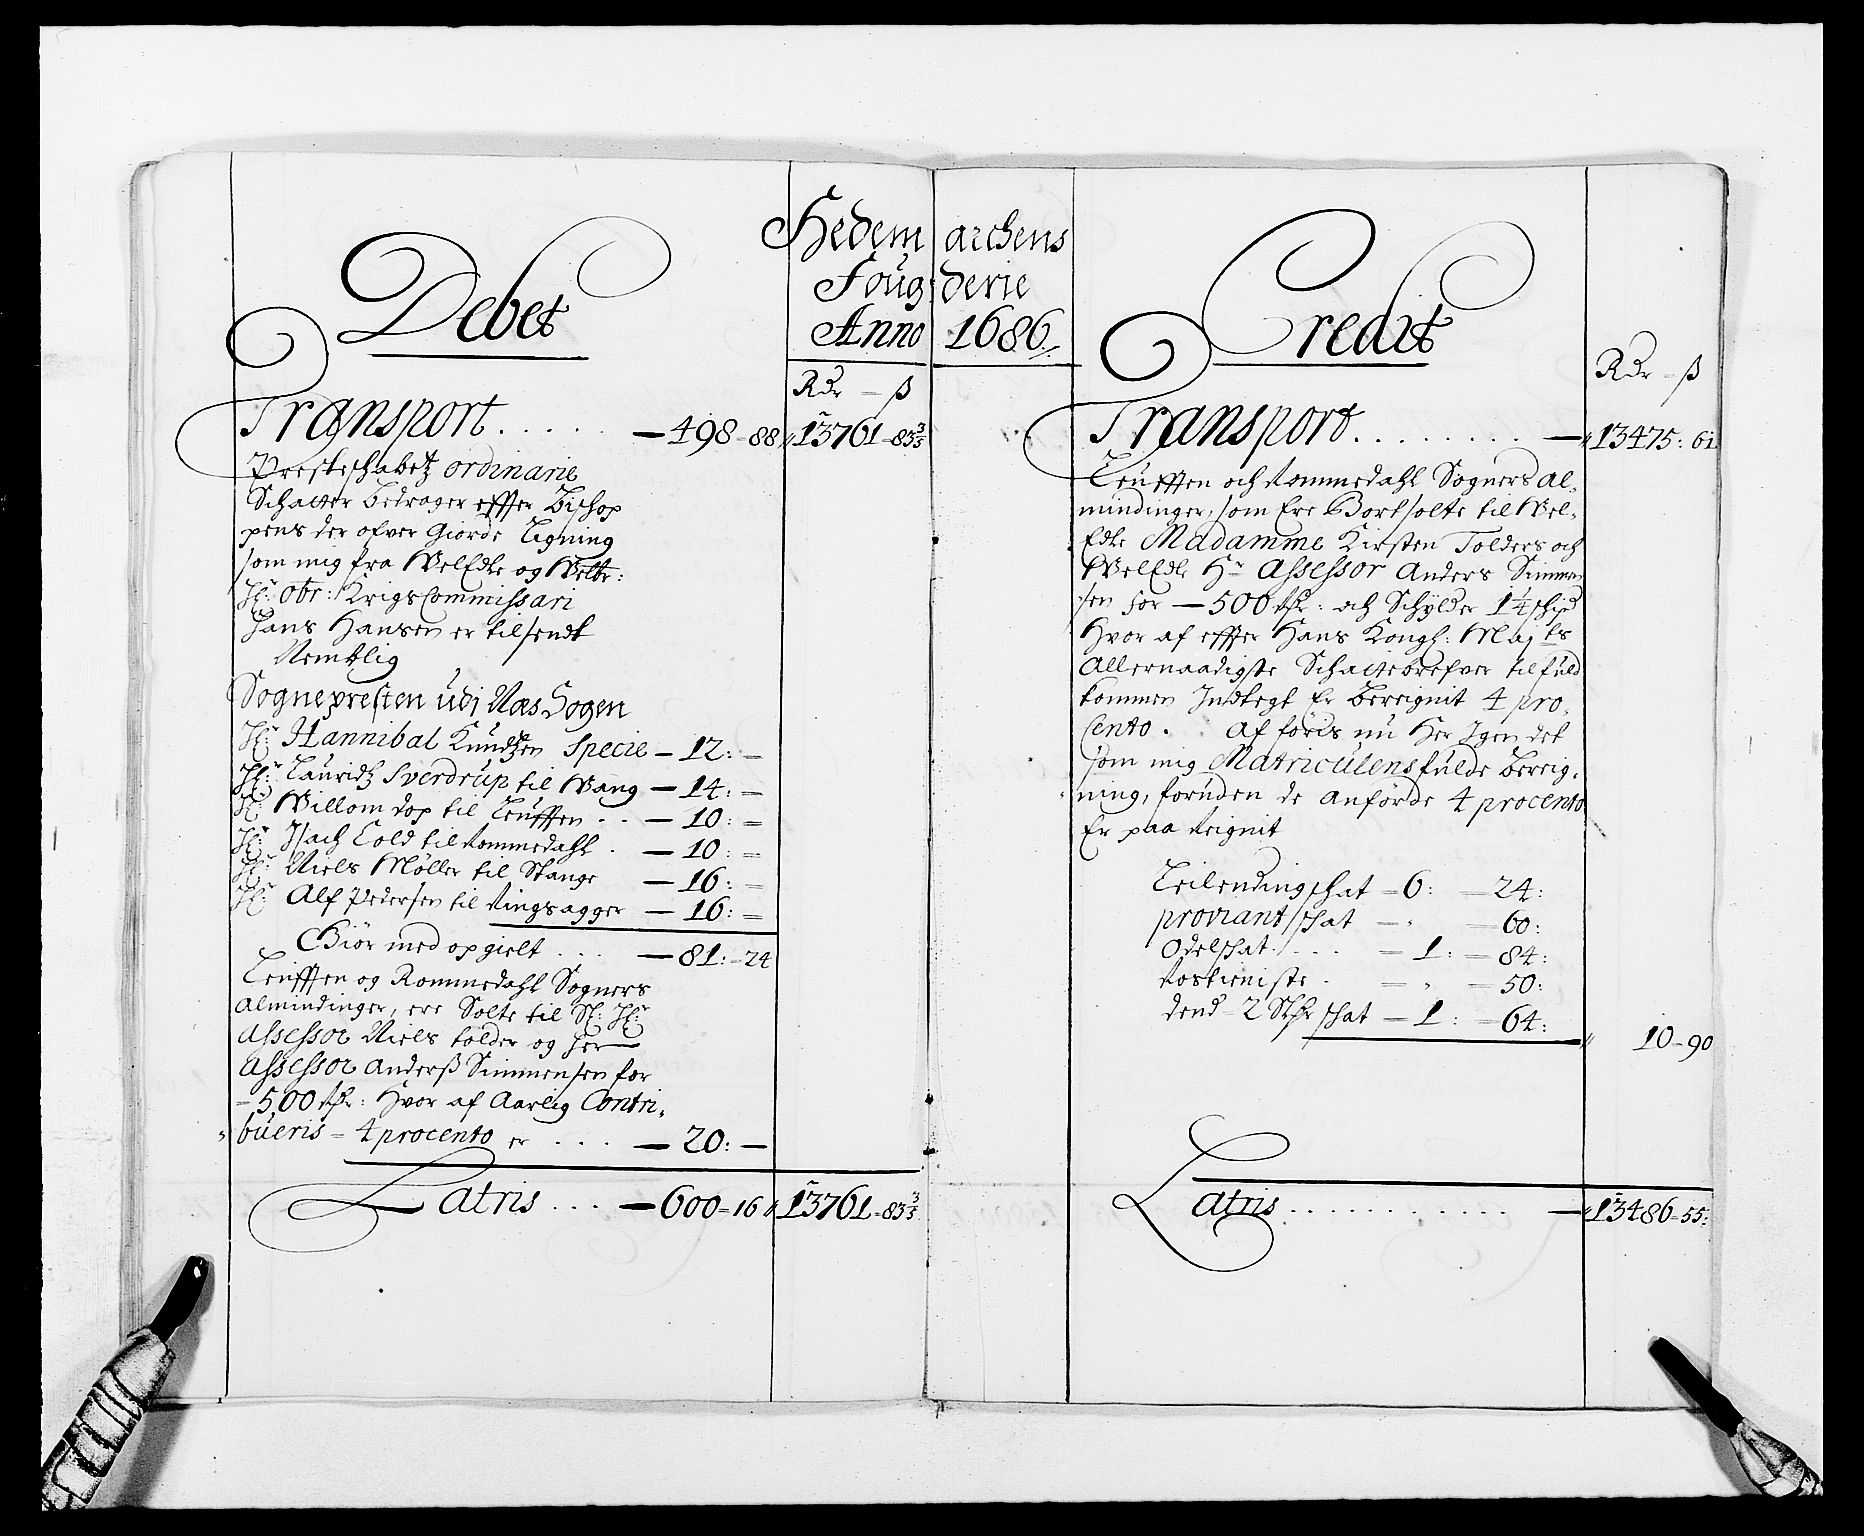 Hedemarchens
Fougderie
Anno 1686
Debet
Rdr - ß
Transport . . . . . — 498 - 88 13761 - 83 3/5
Presteschabetz ordinarie
Schatter bedrager effter Bischop
pens der ofver Giorde Ligning
som mig fra WelEdle og Welbr:
Hr: obr: KrigsCommissari
Hans Hansen er tilsendt
Nemblig
Sognepresten udj Næs Sogen
Hr: Hannibal Knudtzen Specie — 12: —
Hr: Lauridtz Sverdrup til Wang — 14: —
Hr: Willom dop til Leuffen . . — 10: =
Hr: Isach Cold til Rommedahl . — 10: =
Hr: Niels Møller til Stange — 16: =
Hr: Alf Pedersen til Ringsagger — 16: =
Giør med opgielt . . . — 81: - 24
Leuffen og Rommedahl Sogners
Almindinger, ere Solte til Sl: Hr:
Assessor Niels tolder og her
Assessor Anderß Simmensen for
- 500 Rdr: Hvor af Aarlig Contri,
bueris - 4 procento er . . . . — 20: —
Latris . . . — 600 - 16 13761 - 83 3/5
Credit
Rdr - ß
Transport . . . . . . . . — 13475: 61
Leuffen och Rommedahl Sogners Al,
mindinger, som Ere Bortsolte til Wel,
Edle Madamme Kirsten Tolders och
WelEdle Hr Assessor Anders Simmen
sen for — 500 Rdr: och Schylder 1 1/4 schpd
Hvor af effter Hans Kongl: Majts
Allernaadigste Schattebrefver tilfuld
kommen Indtegt Er bereignit 4 pro,
Cento . . Af føris nu Her Igen det
som mig Matriculens fulde bereig,
ning, foruden de anførde 4 procento
Er paa Reignit
Leilendingschat - 6: - 24:
proviantschat - - 60:
Odelschat . . . - 1: - 84:
Rostieniste . - - 50:
dend 2 Rdr schat - 1: - 64:
10 - 90
Latris . . . . . . . . . . . — 13486 - 55: